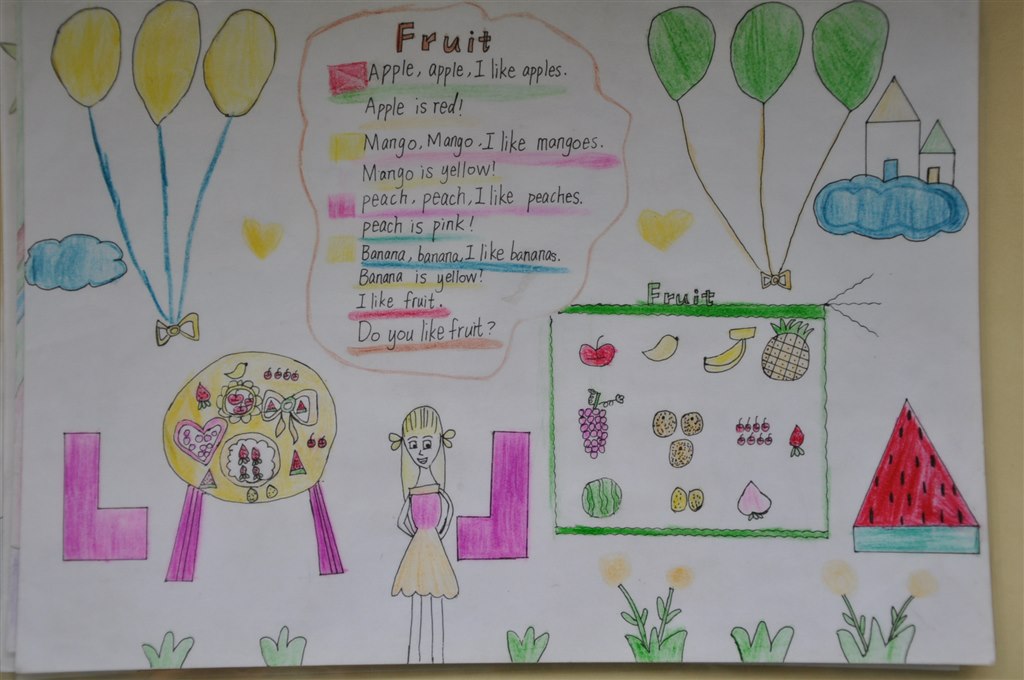 Fruit
Apple, apple, I like apples.
Apple is red!
Mango, Mango. I like mangoes.
Mango is yellow!
peach, peach, I like peaches.
peach is pink!
Banana, banana, I like bananas.
Banana is yellow!
I like fruit.
Do you like fruit?
Fruit